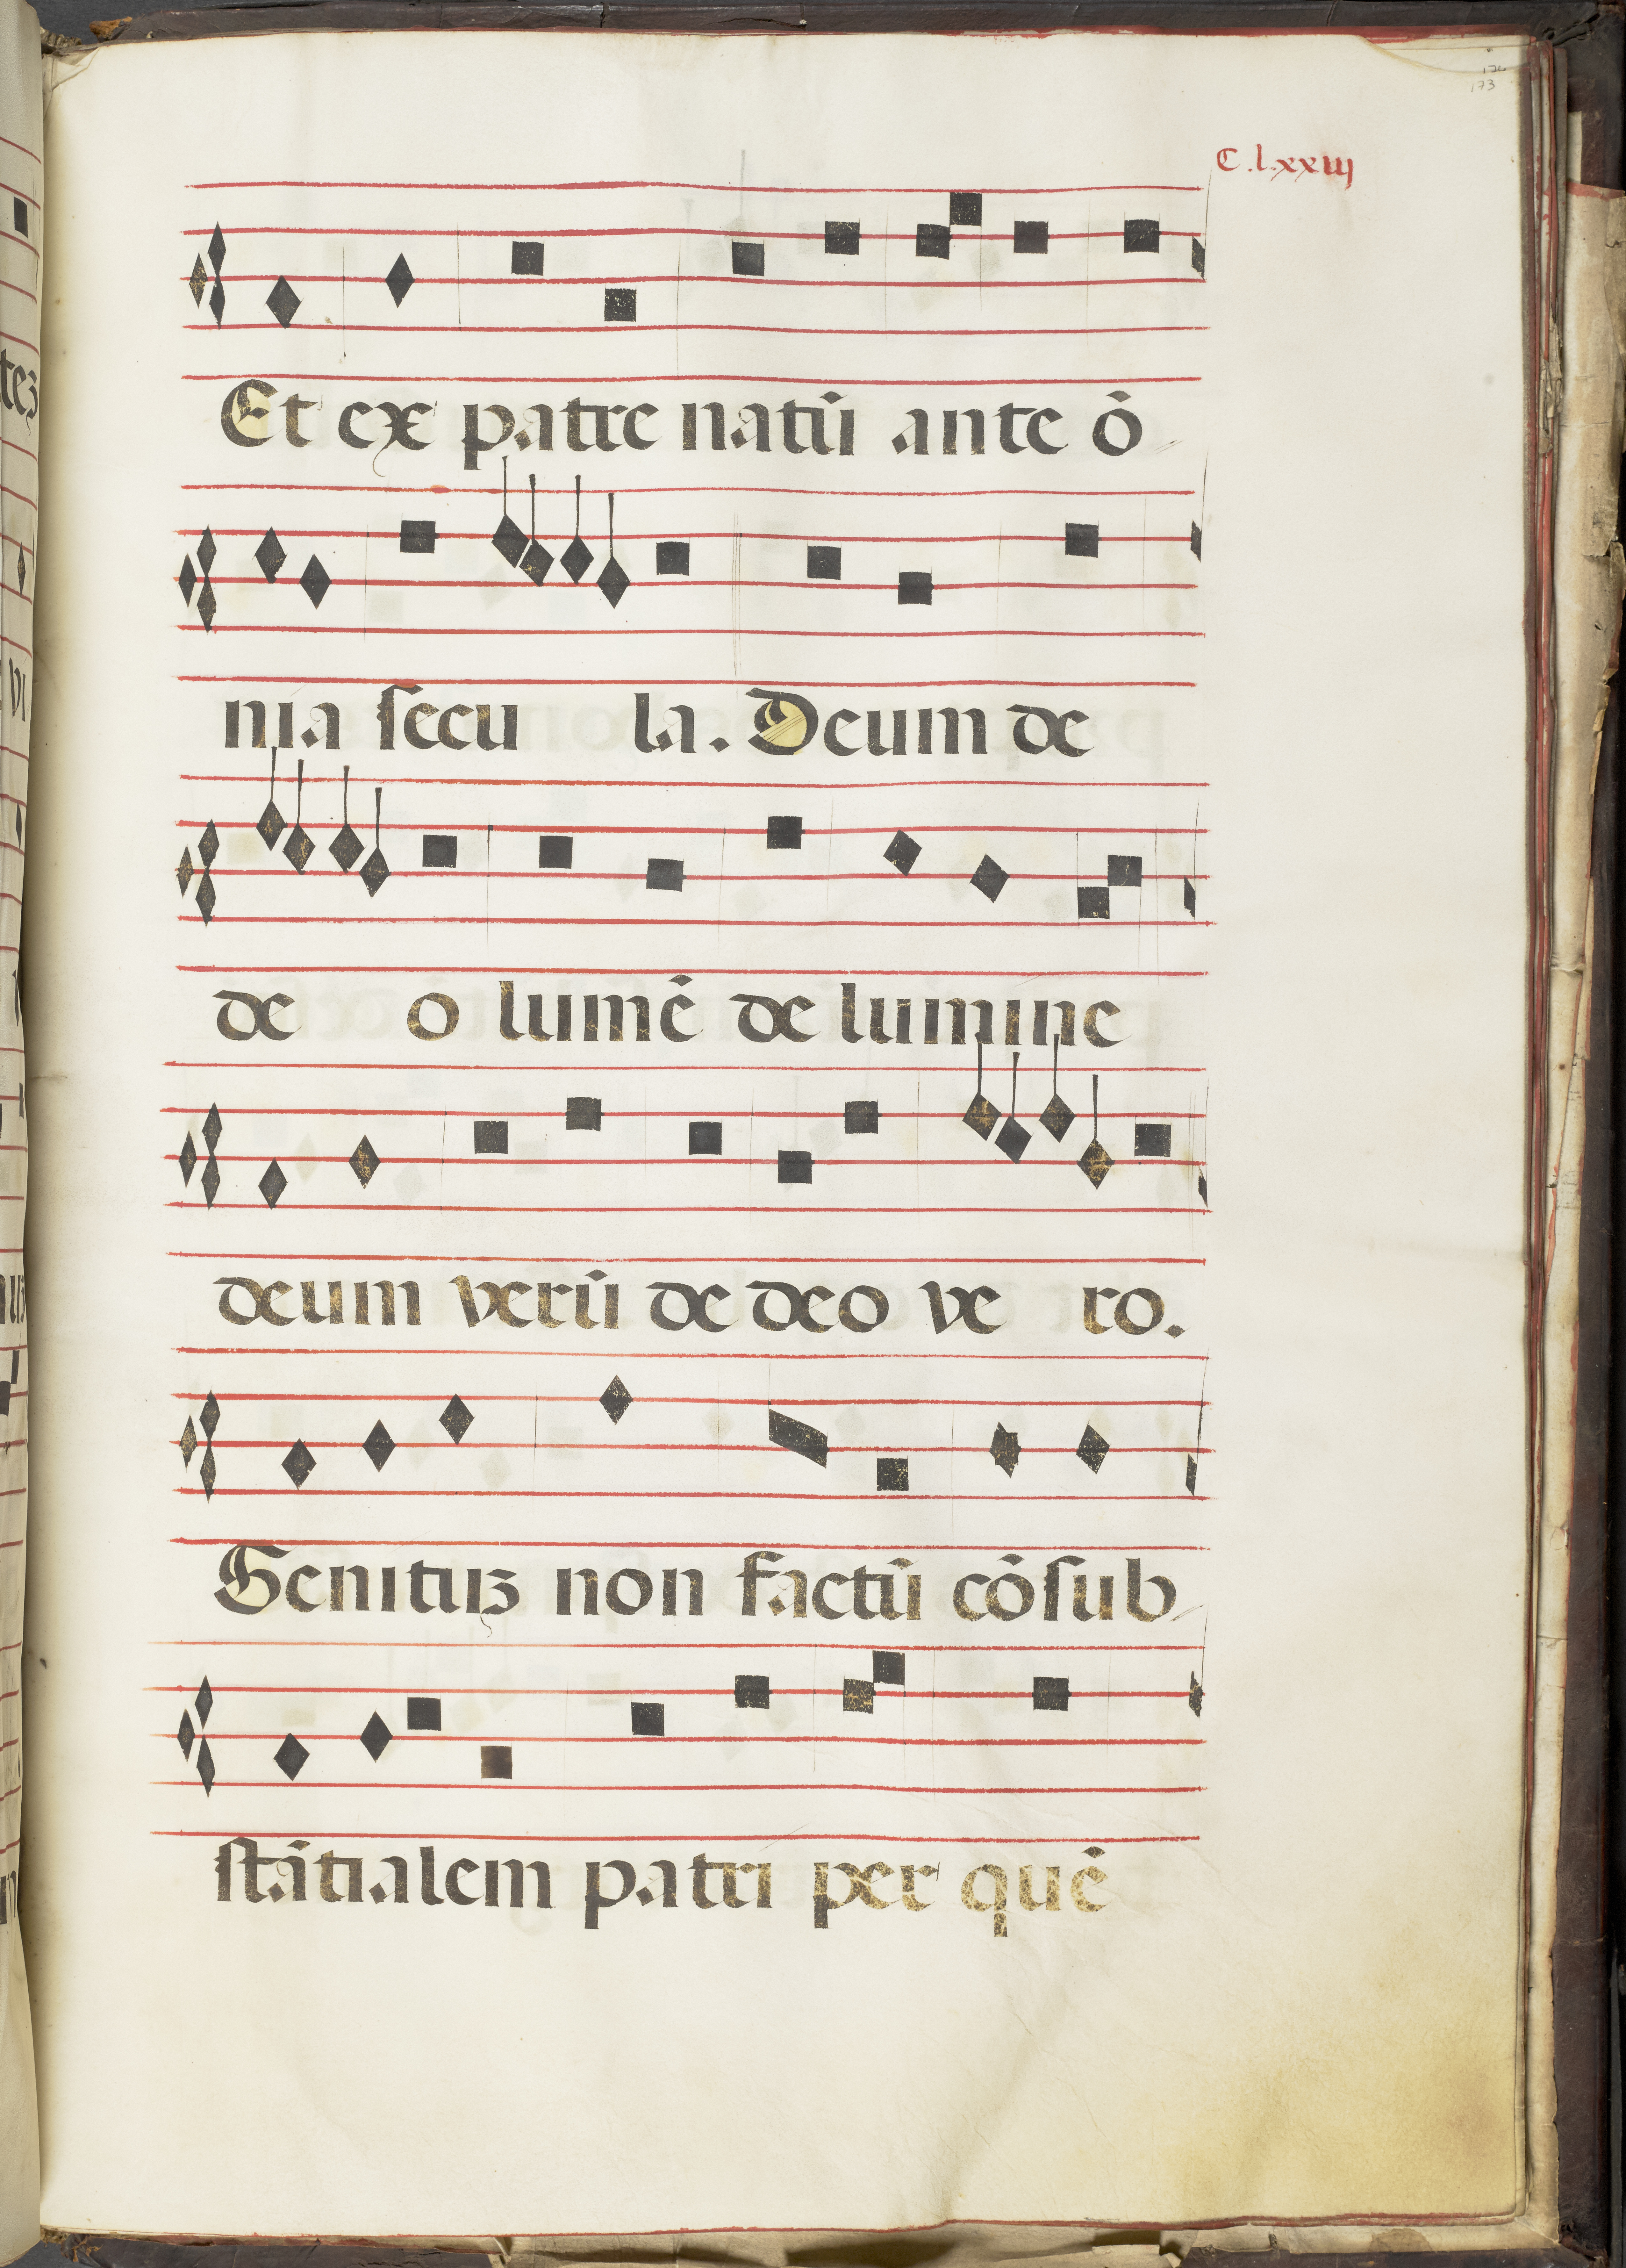 173
C.lxxiij
Et ex patre natū ante ō
nia secu la. Deum de
de o lumē de lumine
deum verū de deo ve ro.
Genituꝫ non factū cōſub
ſtātialem patri per quē